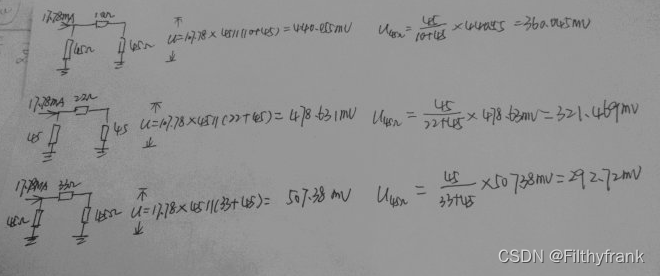 17.78mA 10Ω
45Ω 45Ω U=17.78×45//(10+45)=440.055mV U45Ω=45/(10+45)×440.055=360.045mV
17.78mA 22Ω
45 45 U=17.78×45//(22+45)=478.631mV U45Ω=45/(22+45)×478.63mV=321.469mV
17.78mA 33Ω
45Ω 45Ω U=17.78×45//(33+45)= 507.38mV U45Ω=45/(33+45)×507.38mV=292.72mV
CSDN @Filthyfrank